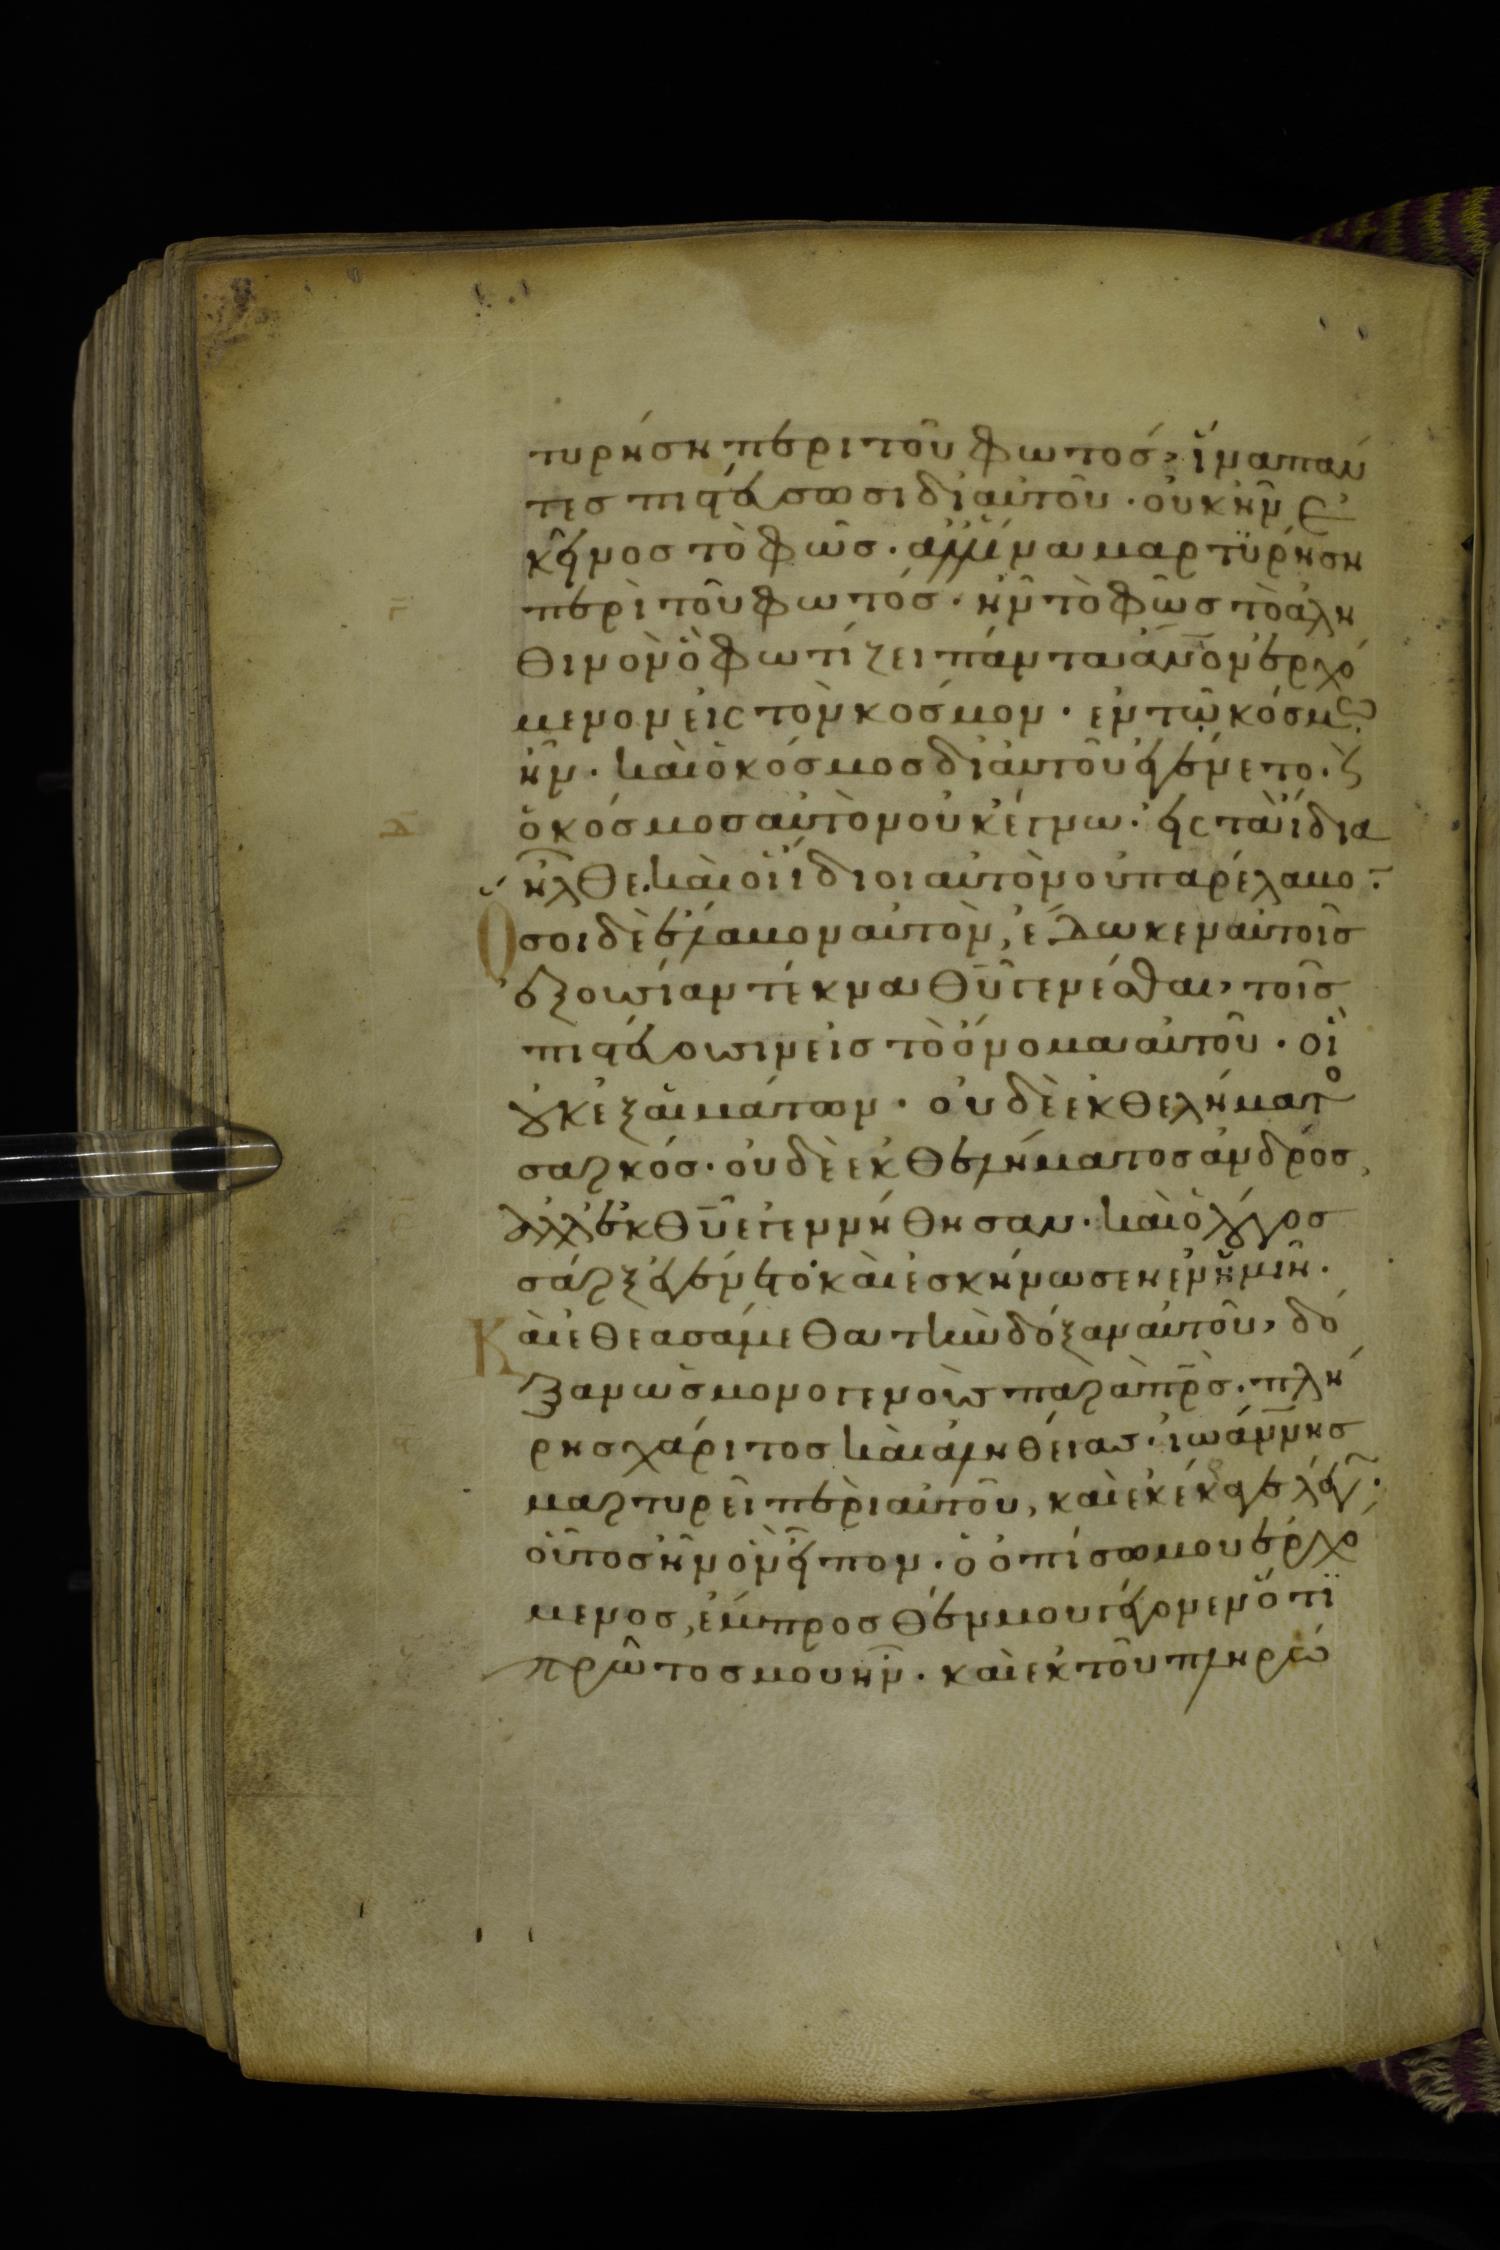 τυρήση περι τοῦ φωτός, ἵνα πάν
τες πιστεύσωσι δι αὐτοῦ · οὐκ ἦν ἐ
κεῖνος τὸ φῶς · ἀλλ' ἵνα μαρτυρήση
περὶ τοῦ φωτός · ἦν τὸ φῶς τὸ ἀλη
θινὸν ὃ φωτίζει πάντα ἀνον ἐρχό
μενον εἰς τὸν κόσμον · ἐν τῷ κόσμω
ἦν · καὶ ὁ κόσμος δι αὐτοῦ ἐγένετο · ϗ
ὁ κόσμος αὐτὸν οὐκ ἔγνω · εἰς τὰ ἴδια
ἦλθε. καὶ οἱ ἴδιοι αὐτὸν οὐ παρέλαβο̅ ·
Ὅσοι δὲ ἔλαβον αὐτὸν, ἔδωκεν αὐτοῖς
ἐξουσίαν τέκνα θυ γενέσθαι, τοῖς
πιστεύουσιν εἰς τὸ ὄνομα αὐτοῦ · οἳ
οὐκ ἐξ αἱμάτων · οὐδὲ ἐκ θελήματο
σαρκός · οὐδὲ ἐκ θελήματος ἀνδρός,
ἀλλ' ἐκ θυ ἐγεννήθησαν · καὶ ὁ λόγος
σάρξ ἐγένετο · καὶ ἐσκήνωσεν ἐν ἡμῖν ·
Καὶ ἐθεασάμεθα τὴν δόξαν αὐτοῦ, δό
ξαν ὡς μονογενοῦς παρὰ πρς · πλή
ρης χάριτος καὶ ἀληθείας · ἰωάννης
μαρτυρεῖ περὶ αὐτοῦ, καὶ ἐκέκραγε λέγ ·
οὗτος ἦν ὃν εἶπον · ὁ ὀπίσω μου ἐρχό
μενος, ἔμπροσθέν μου γέγονεν ὅτι
πρῶτος μου ἦν · καὶ ἐκ τοῦ πληρώ